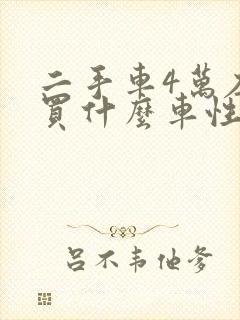 二手車4萬左
買什麼車性
呂不韦他爹